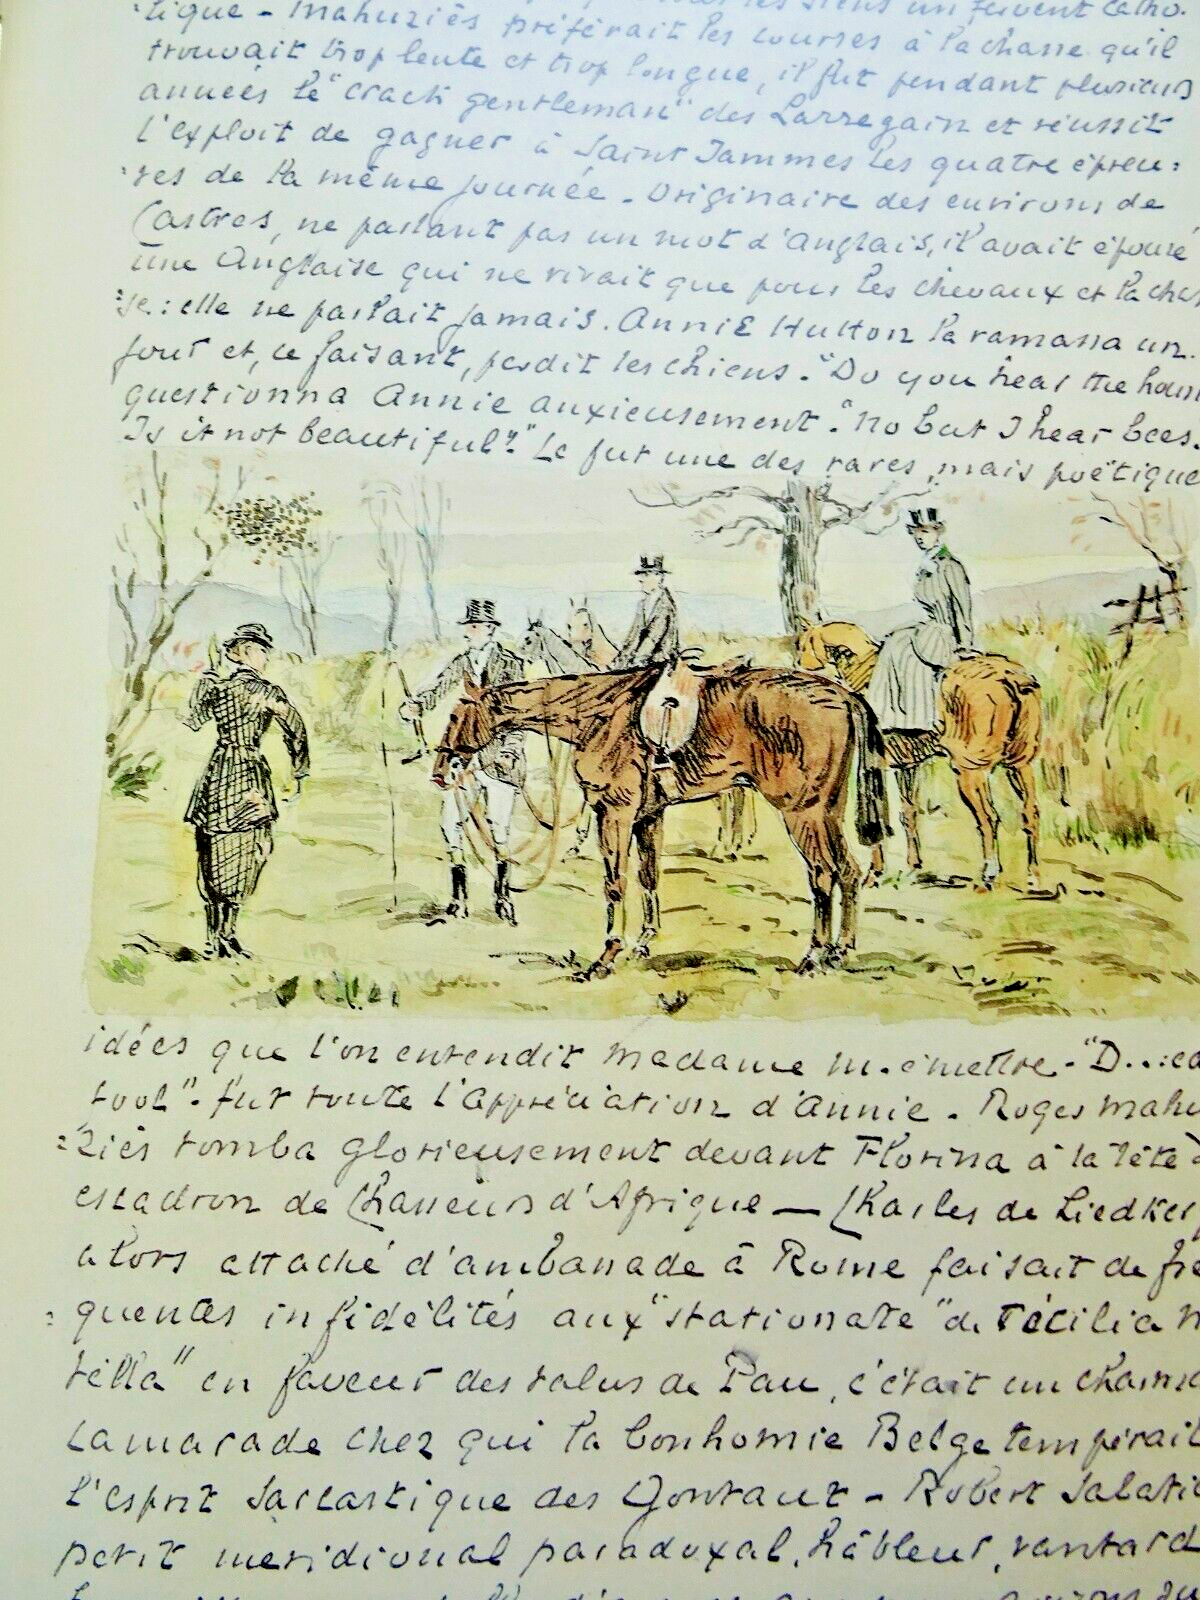 :tique - Mahuziès préférait les courses à la chasse qu'il
trouvait trop lente et trop longue, il fut pendant plusieurs
années le "crack gentleman" des Larregain et réussit
l'exploit de gagner à Saint Jammes les quatre épreu:
:ves de la même journée - Originaire des environs de
Castres, ne parlant pas un mot d'Anglais, il avait épousé
une Anglaise qui ne vivait que pour les chevaux et la chas
:se : elle ne parlait jamais. Annie Hutton la ramassa un
jour et, ce faisant, perdit les chiens - "Do you hear the houn
questionna Annie anxieusement - "no but I hear bees.
Is it not beautiful?" Ce fut une des rares, mais poëtique
idées que l'on entendit madame M. émettre - "D...ed
fool" - fut toute l'appréciation d'Annie - Roger Mahu
:ziès tomba glorieusement devant Florina à la tête d
escadron de Chasseurs d'Afrique — Charles de Liedker
alors attaché d'ambassade à Rome faisait de fré
:quentes infidélités aux "stationate" de Cécilia M
tella" en faveur des talus de Pau, c'était un charma
camarade chez qui la bonhomie Belge tempérait
l'esprit sarcastique des Gontaut - Robert
petit méridional paradoxal, hâbleur, vantard